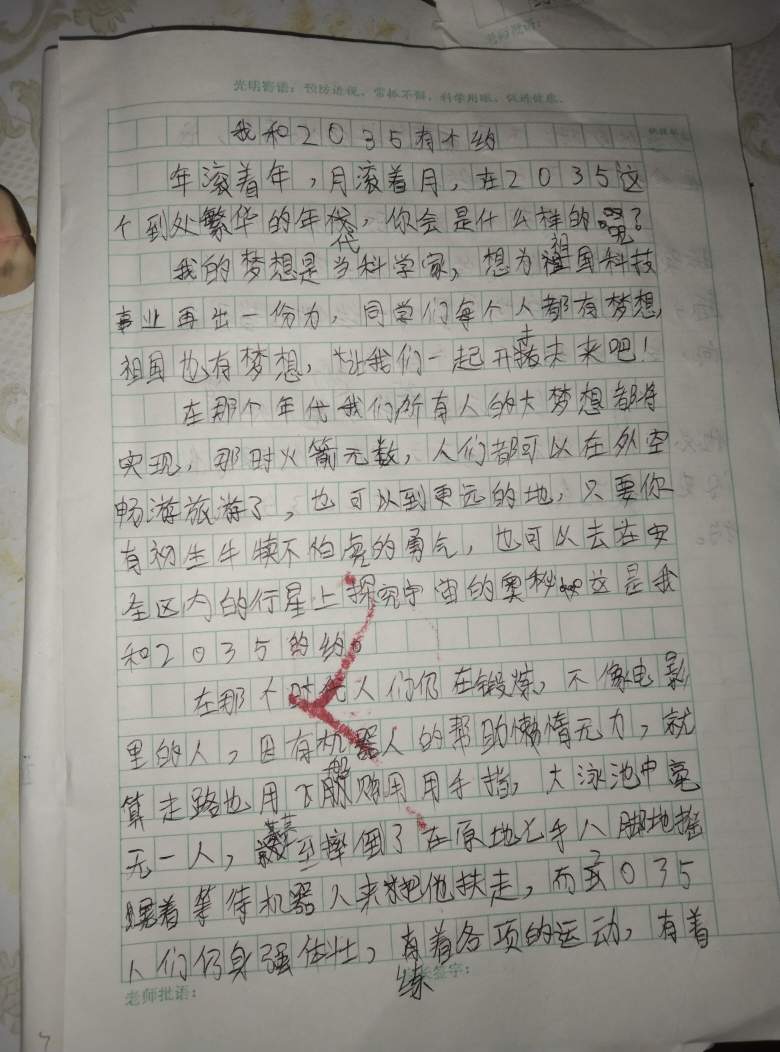 老师批语:
光明寄语：预防近视，常抓不懈，科学用眼，促进健康。
我和2035有个约
年滚着年，月滚着月，在2035这
个到处繁华的年代，你会是什么样的呢？
我的梦想是当科学家，想为祖国科技
事业再出一份力，同学们每个人都有梦想，
祖国也有梦想，让我们一起开走未来吧！
在那个年代我们所有人的大梦想都将
实现，那时火箭无数，人们都可以在外空
畅游旅游了，也可以到更远的地，只要你
有初生牛犊不怕虎的勇气，也可以去在安
全区内的行星上探究宇宙的奥秘 这是我
和2035的约。
在那个时代人们仍在锻炼，不像电影
里的人，因有机器人的帮助懒惰无力，就
算走路也用飞船 用手指，大泳池中毫
无一人，甚至摔倒了在原地七手八脚地摇
着等待机器人来把他扶走，而2035
人们仍身强体壮，有着各项的运动，有着
练
签字:
老师批语: